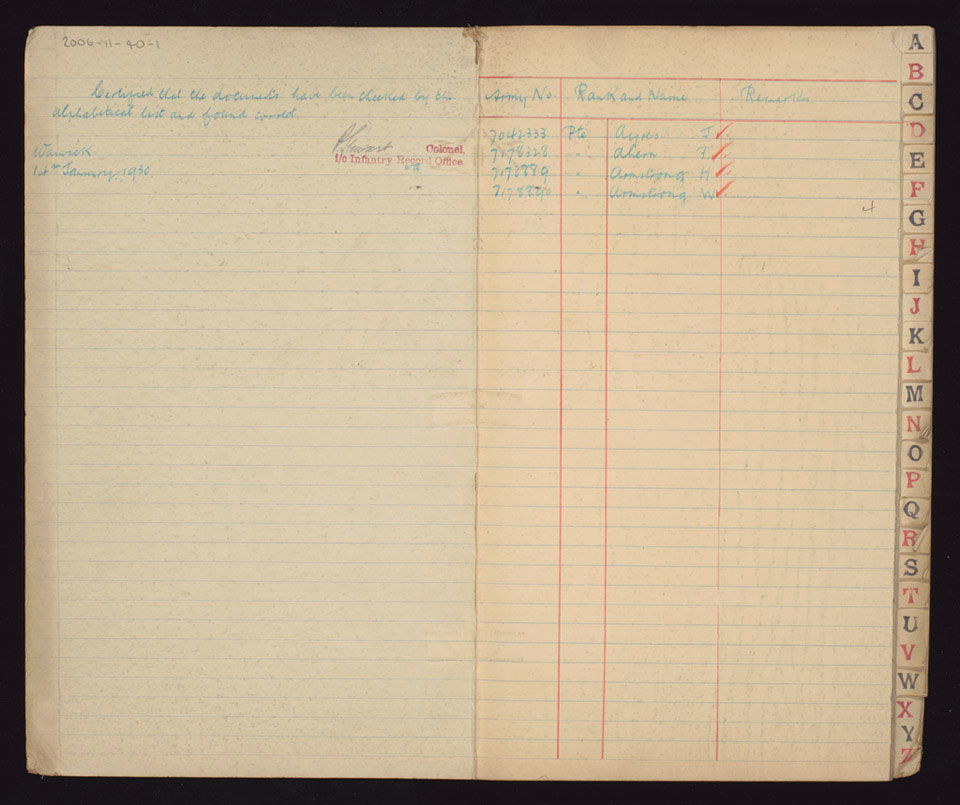 2006-11-40-1
Certified that the documents have been checked by the
alphabetical list and found correct.
Warwick
1st January 1930.
Colonel,
i/c Infantry Record Office.
Army No Rank and Name Remarks
7042333 Pte Ayres J
7178328 " Ahern F
7178889 " Armstrong H
7178890 " Armstrong W
4
A
B
C
D
E
F
G
H
I
J
K
L
M
N
O
P
Q
R
S
T
U
V
W
X
Y
Z